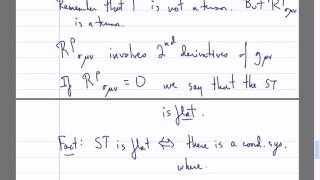 Remember that Γ is not a tensor. But R^ρ_σμν
is a tensor.
R^ρ_σμν involves 2nd derivatives of g_μν
If R^ρ_σμν = 0 we say that the ST
is flat.
Fact: ST is flat ⇔ there is a coord. sys.
where